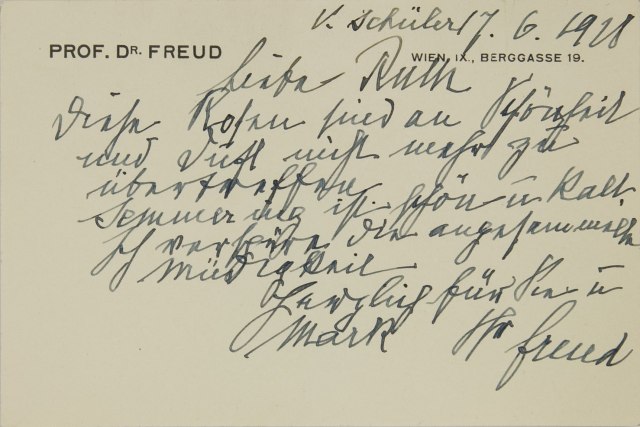 V. Schüler 17. 6. 1928
PROF. DR. FREUD
WIEN, IX., BERGGASSE 19.
Liebe Ruth
Diese Rosen sind an Schönheit
und Duft nicht mehr zu
übertreffen
Semmering ist schön u kalt
Ich verspüre die angesammelte
Müdigkeit
Herzlich für Sie u
Mark Ihr Freud